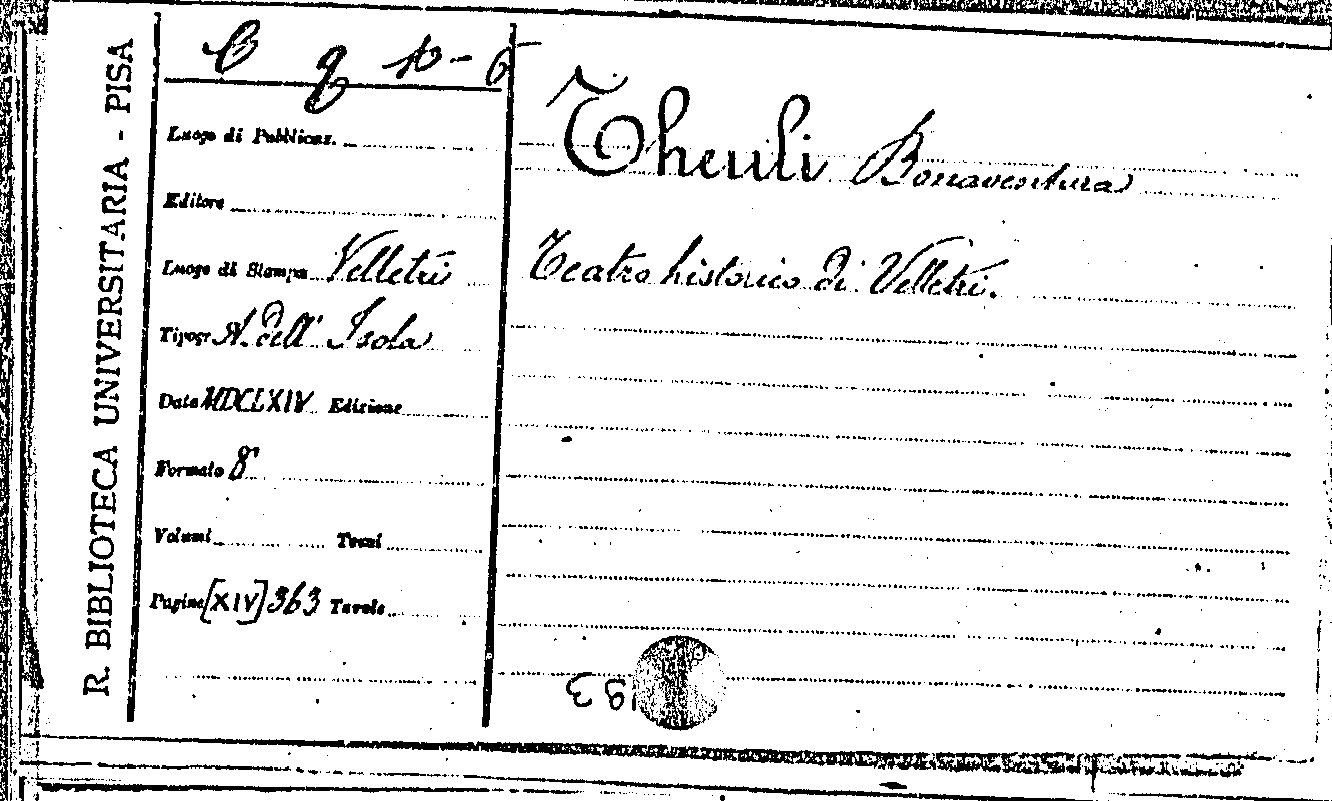 R. BIBLIOTECA UNIVERSITARIA - PISA
B q 10-6
Luogo di Pubblicaz.
Editore
Luogo di Stampa Velletri
Tipogr A. dell' Isola
Data MDCLXIV Edizione
Formato 8°
Volumi Tomi
Pagine [XIV] 363 Tavole
Theuli Bonaventura
Teatro historico di Velletri.